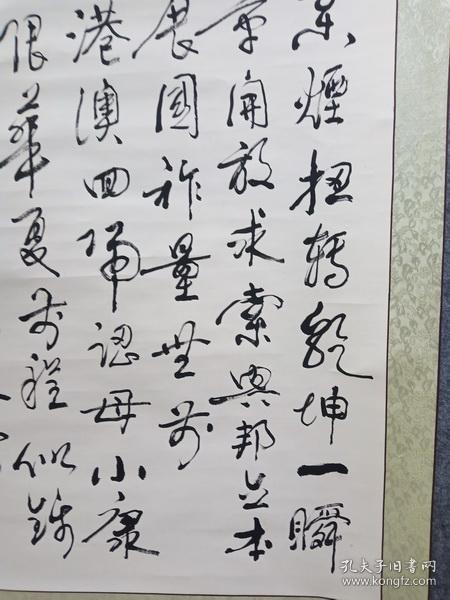 煙扭轉乾坤一瞬
開放求索興邦立本
展國祚量無前
港澳回歸認母小康
華夏前程似錦
孔夫子旧书网
www.kongfz.com